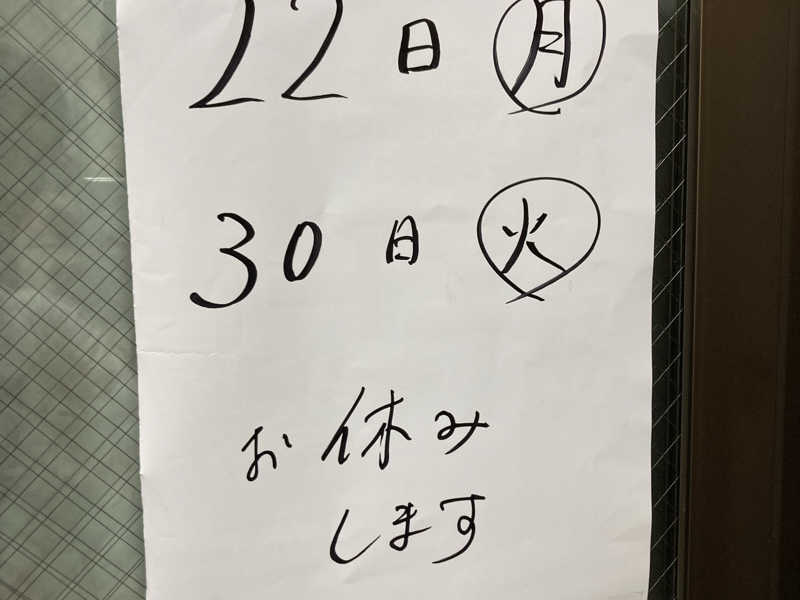 22日㊊
30日㊋
お休み
します